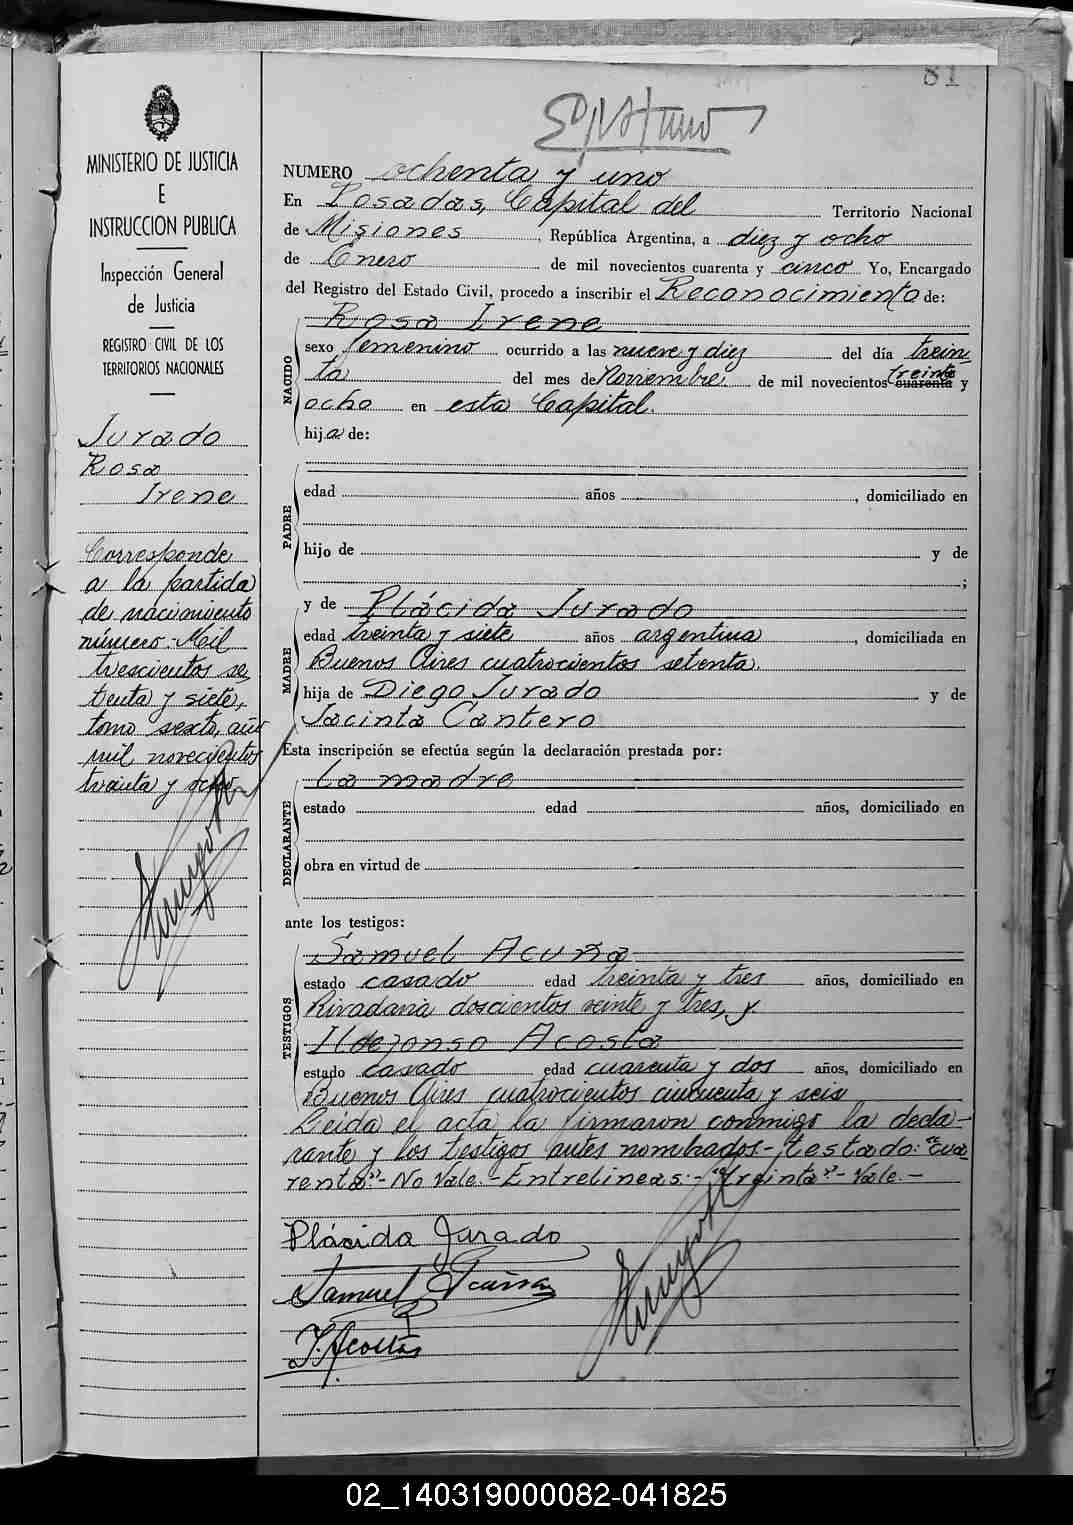 81
MINISTERIO DE JUSTICIA
E
INSTRUCCION PUBLICA
Inspección General
de Justicia
REGISTRO CIVIL DE LOS
TERRITORIOS NACIONALES
Jurado
Rosa
Irene
Corresponde
a la partida
de nacimiento
número. Mil
trescientos se
tenta y siete,
tomo sexto, año
mil novecientos
treinta y ocho
NUMERO ochenta y uno
En Posadas, Capital del Territorio Nacional
de Misiones, República Argentina, a diez y ocho
de Enero de mil novecientos cuarenta y cinco Yo, Encargado
del Registro del Estado Civil, procedo a inscribir el Reconocimiento de:
NACIDO
Rosa Irene
sexo femenino ocurrido a las nueve y diez del día trein-
ta del mes de Noviembre de mil novecientos cuarenta treinta y
ocho en esta Capital.
hija de:
PADRE
edad años , domiciliado en
hijo de y de
;
MADRE
y de Plácida Jurado
edad treinta y siete años argentina , domiciliada en
Buenos Aires cuatrocientos setenta.
hija de Diego Jurado y de
Jacinta Cantero
Esta inscripción se efectúa según la declaración prestada por:
DECLARANTE
la madre
estado edad años, domiciliado en
obra en virtud de
ante los testigos:
TESTIGOS
Samuel Acuña
estado casado edad treinta y tres años, domiciliado en
Rivadavia doscientos veinte y tres, y
Ildefonso Acosta
estado casado edad cuarenta y dos años, domiciliado en
Buenos Aires cuatrocientos cincuenta y seis
Leída el acta la firmaron conmigo la decla-
rante y los testigos antes nombrados - testado: "cua-
renta" - No Vale. - Entrelineas: - "treinta" - Vale. -
Plácida Jurado
Samuel Acuña
I. Acosta
02_140319000082-041825